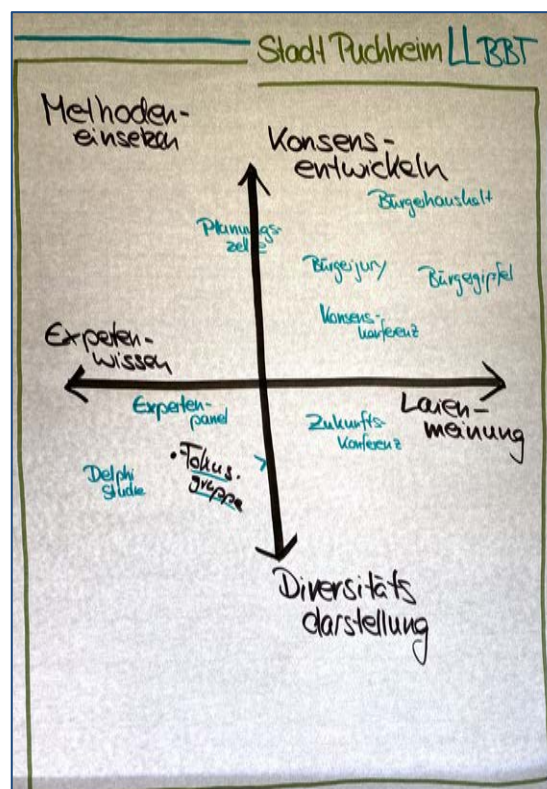 Stadt Puchheim LLBBT
Methoden-
einsetzen
Konsens-
entwickeln
Bürgerhaushalt
Planungs-
zelle
Bürgerjury
Bürgegipfel
Konsens-
konferenz
Experten-
wissen
Laien-
meinung
Experten-
panel
Zukunfts-
Konferenz
• Fokus-
gruppe
Delphi
studie
Diversitäts
darstellung